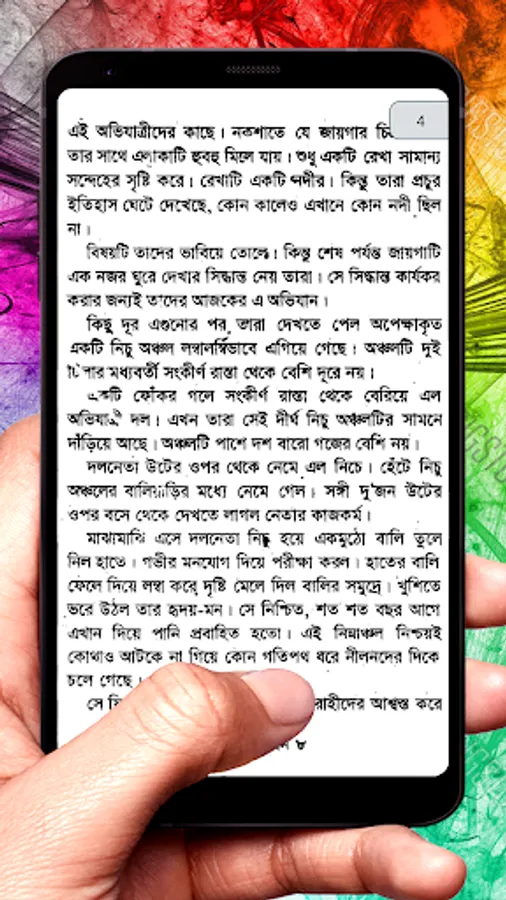 4
এই অভিযাত্রীদের কাছে। নকশাতে যে জায়গার
তার সাথে এলাকাটি হুবহু মিলে যায়। শুধু একটি রেখা সামান্য
সন্দেহের সৃষ্টি করে। রেখাটি একটি নদীর। কিন্তু তারা প্রচুর
ইতিহাস ঘেটে দেখেছে, কোন কালেও এখানে কোন নদী ছিল
না।
বিষয়টি তাদের ভাবিয়ে তোলে। কিন্তু শেষ পর্যন্ত জায়গাটি
এক নজর ঘুরে দেখার সিদ্ধান্ত নেয় তারা। সে সিদ্ধান্ত কার্যকর
করার জন্যই তাদের আজকের এ অভিযান।
কিছু দূর এগুনোর পর তারা দেখতে পেল অপেক্ষাকৃত
একটি নিচু অঞ্চল লম্বালম্বিভাবে এগিয়ে গেছে। অঞ্চলটি দুই
মধ্যবর্তী সংকীর্ণ রাস্তা থেকে বেশি দূরে নয়।
একটি ফোঁকর গলে সংকীর্ণ রাস্তা থেকে বেরিয়ে এল
অভিযাত্রী দল। এখন তারা সেই দীর্ঘ নিচু অঞ্চলটির সামনে
দাঁড়িয়ে আছে। অঞ্চলটি পাশে দশ বারো গজের বেশি নয়।
দলনেতা উটের ওপর থেকে নেমে এল নিচে। হেঁটে নিচু
অঞ্চলের বালিয়াড়ির মধ্যে নেমে গেল। সঙ্গী দু'জন উটের
ওপর বসে থেকে দেখতে লাগল নেতার কাজকর্ম।
মাঝামাঝি এসে দলনেতা নিচু হয়ে একমুঠো বালি তুলে
নিল হাতে। গভীর মনযোগ দিয়ে পরীক্ষা করল। হাতের বালি
ফেলে দিয়ে লম্বা করে দৃষ্টি মেলে দিল বালির সমুদ্রে। খুশিতে
ভরে উঠল তার হৃদয়-মন। সে নিশ্চিত, শত শত বছর আগে
এখান দিয়ে পানি প্রবাহিত হতো। এই নিম্নাঞ্চল নিশ্চয়ই
কোথাও আটকে না গিয়ে কোন গতিপথ ধরে নীলনদের দিকে
চলে গেছে।
সে আশ্বস্ত করে
৮